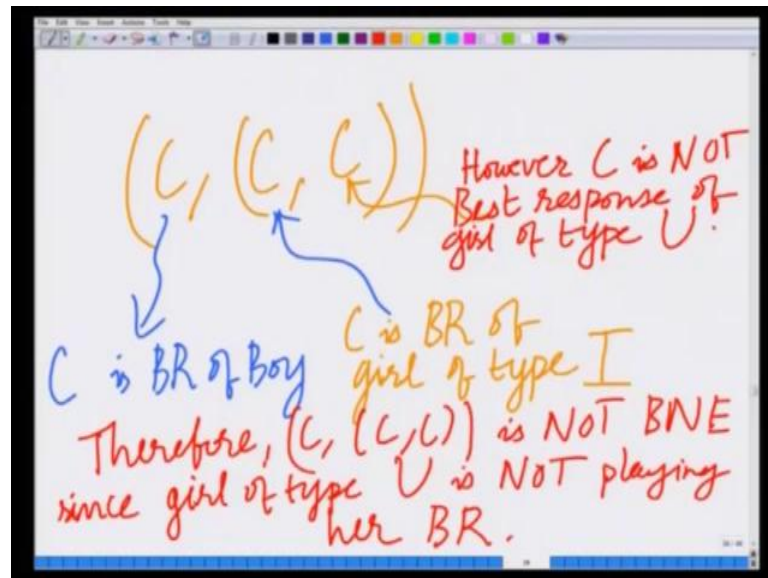 File Edit View Insert Actions Tools Help
(C, (C, C))
However C is NOT
Best response of
girl of type U.
C is BR of Boy
C is BR of
girl of type I
Therefore, (C, (C,C)) is NOT BNE
since girl of type U is NOT playing
her BR.